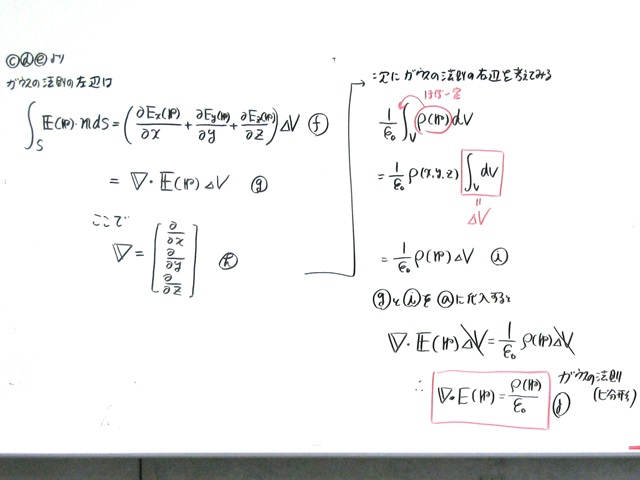 ⓒⓓⓔより
ガウスの法則の左辺は
∫_S 𝔼(𝕣)・𝕟ds = (∂Ex(𝕣)/∂x + ∂Ey(𝕣)/∂y + ∂Ez(𝕣)/∂z) ΔV ⓕ
= ∇・𝔼(𝕣) ΔV ⓖ
ここで
∇ = [∂/∂x ∂/∂y ∂/∂z]
次にガウスの法則の右辺を考えてみる
ほぼ一定
1/ε₀ ∫_V ρ(𝕣) dV
= 1/ε₀ ρ(x,y,z) ∫_V dV
= ΔV
= 1/ε₀ ρ(𝕣) ΔV ⓘ
ⓖとⓘをⓐに代入すると
∇・𝔼(𝕣) ΔV = 1/ε₀ ρ(𝕣) ΔV
∴ ∇・𝔼(𝕣) = ρ(𝕣)/ε₀ ⓙ
ガウスの法則
(微分形)